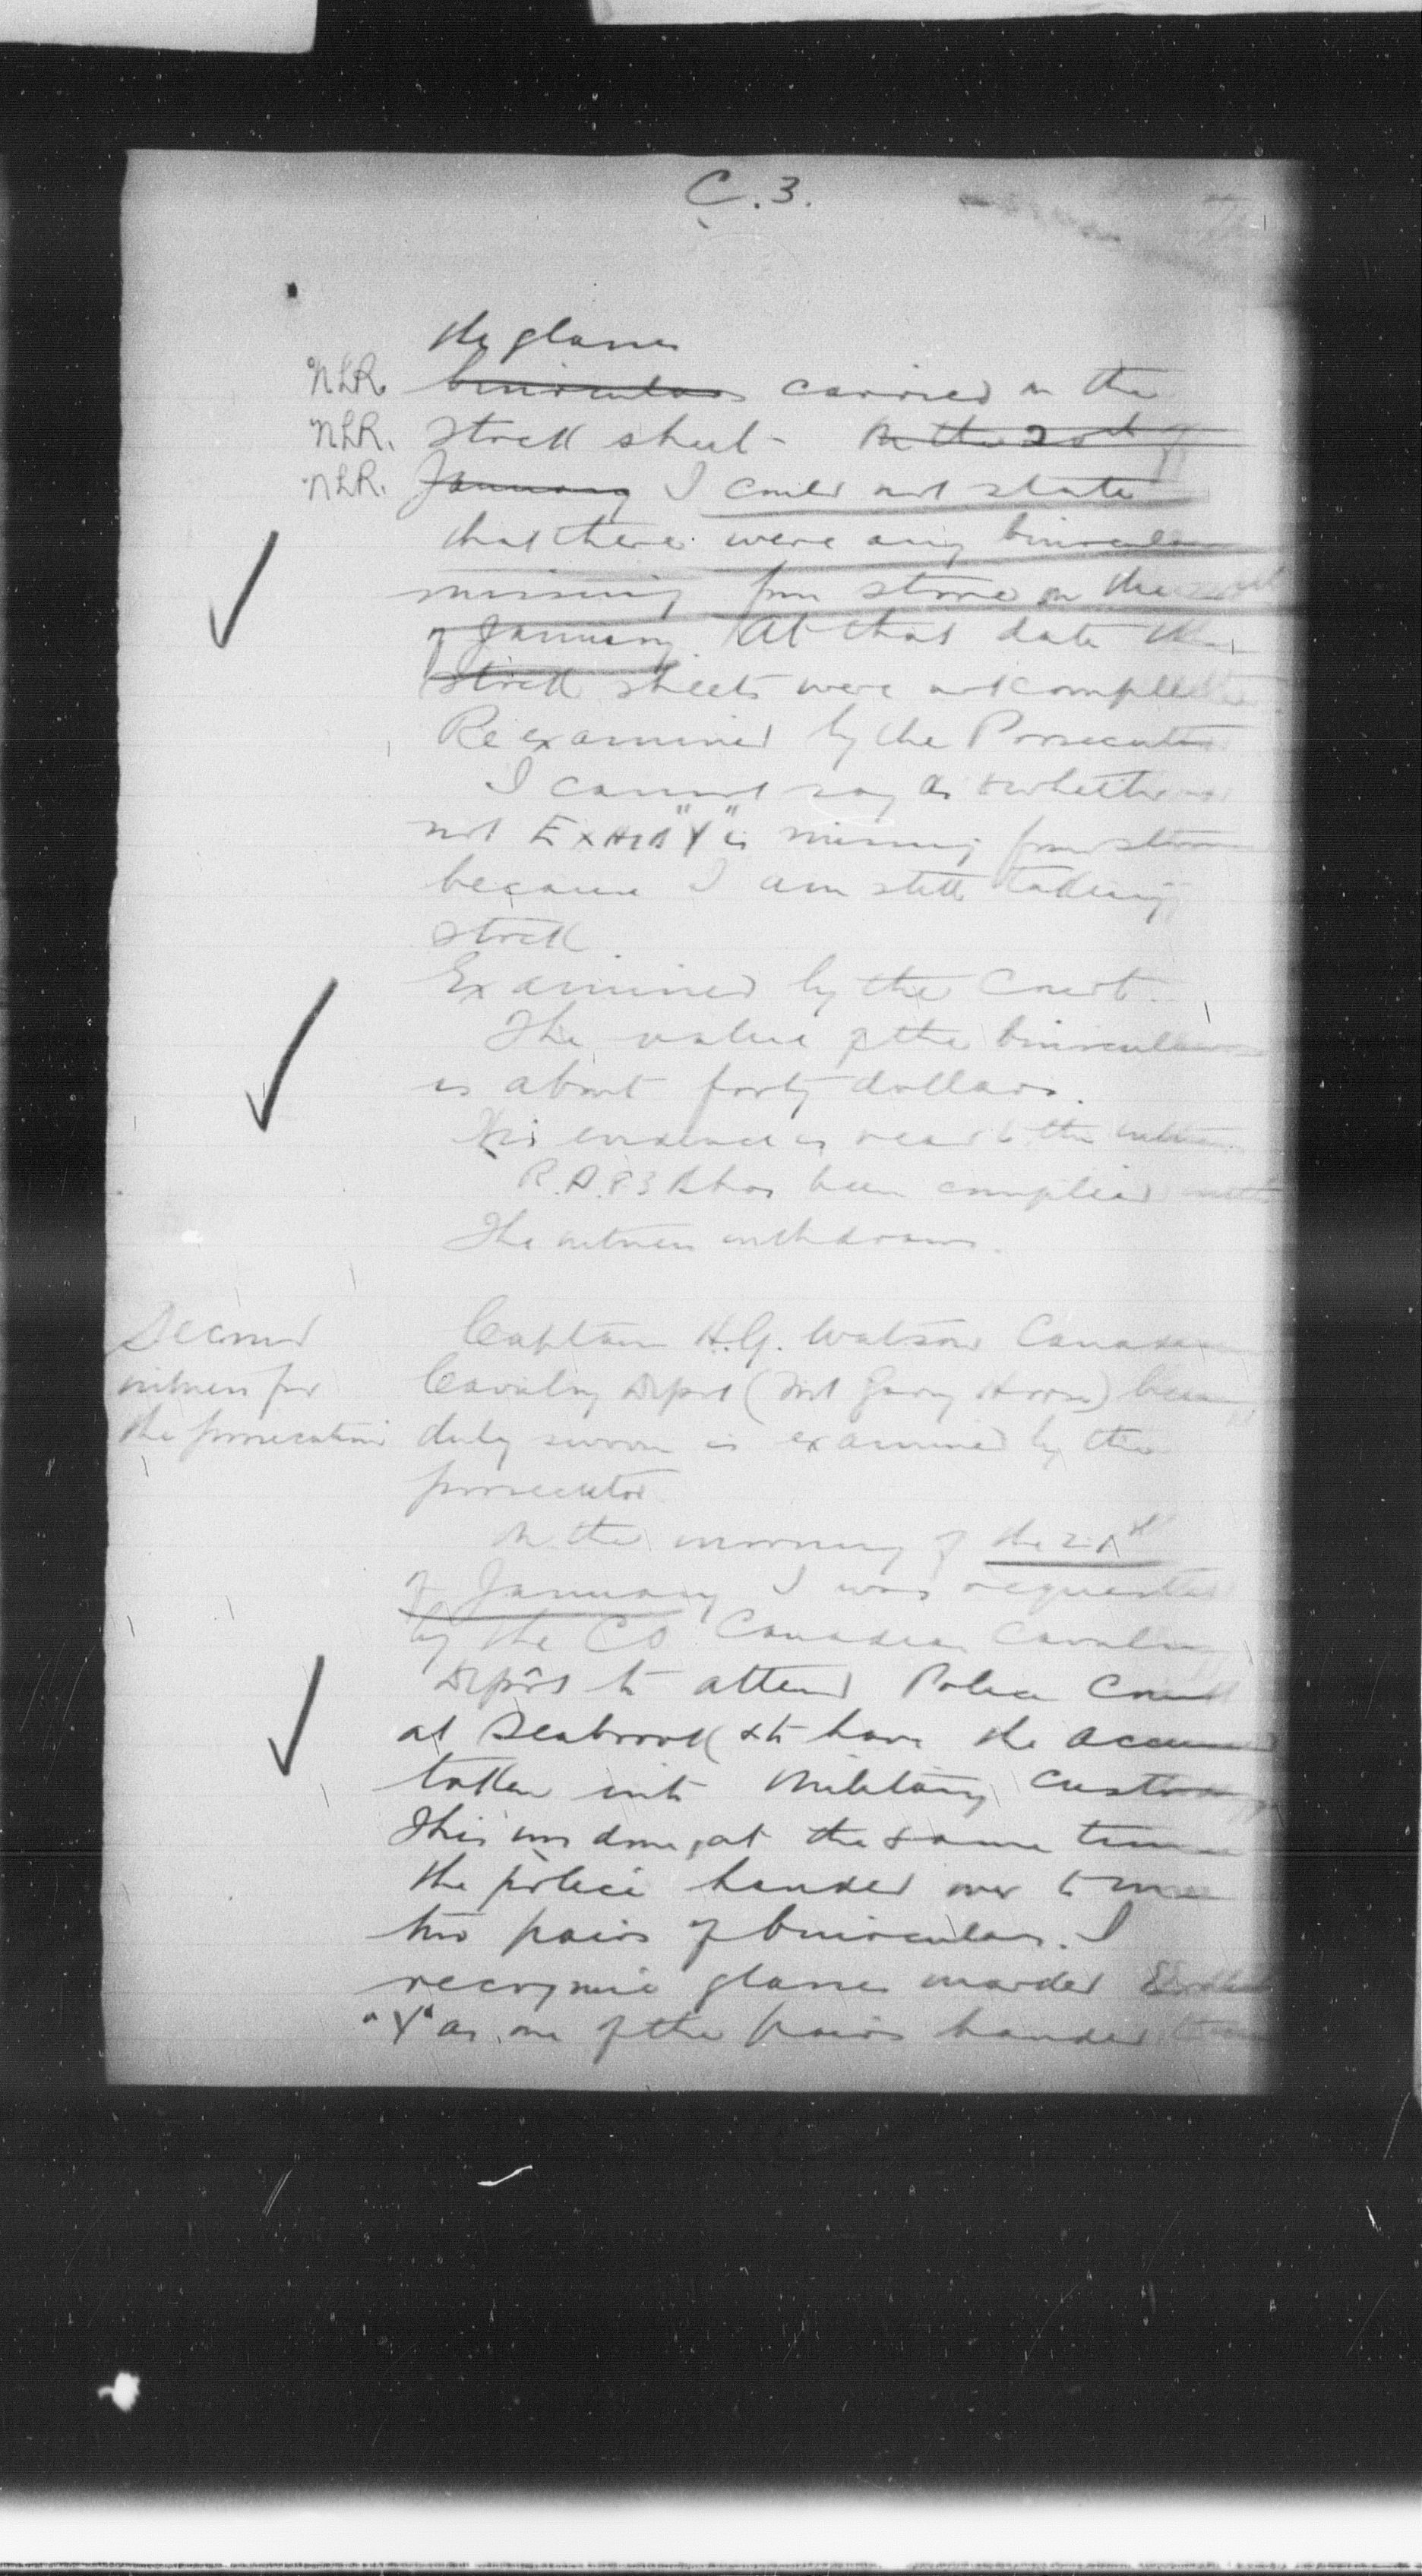 C. 3.
the glasses
NLR. binoculars carried on the
NLR. stock sheet - On the 20th of
NLR. January I could not state
that there were any binoculars
missing from store on the
of January. At that date the
stock sheets were not complete
Reexamined by the Prosecutor
I cannot say as to whether or
not Exhib "Y" is missing from store
because I am still taking
stock
Examined by the Court.
The value of the binoculars
is about forty dollars.
His evidence is read to the witness.
R.P. 83 B has been complied with
The witness withdraws.
Second
witness for
the prosecution
Captain H.G. Watson Canadian
Cavalry Depot (Fort Garry Horse) being
duly sworn is examined by the
prosecutor
On the morning of the
of January I was requested
by the CO Canadian Cavalry
Depot to attend Police Court
at Seabrook & to have the accused
taken into Military Custody
This was done, at the same time
the police handed over to me
two pairs of binoculars. I
recognise glasses marked Exhibit
"Y" as one of the pairs handed to me